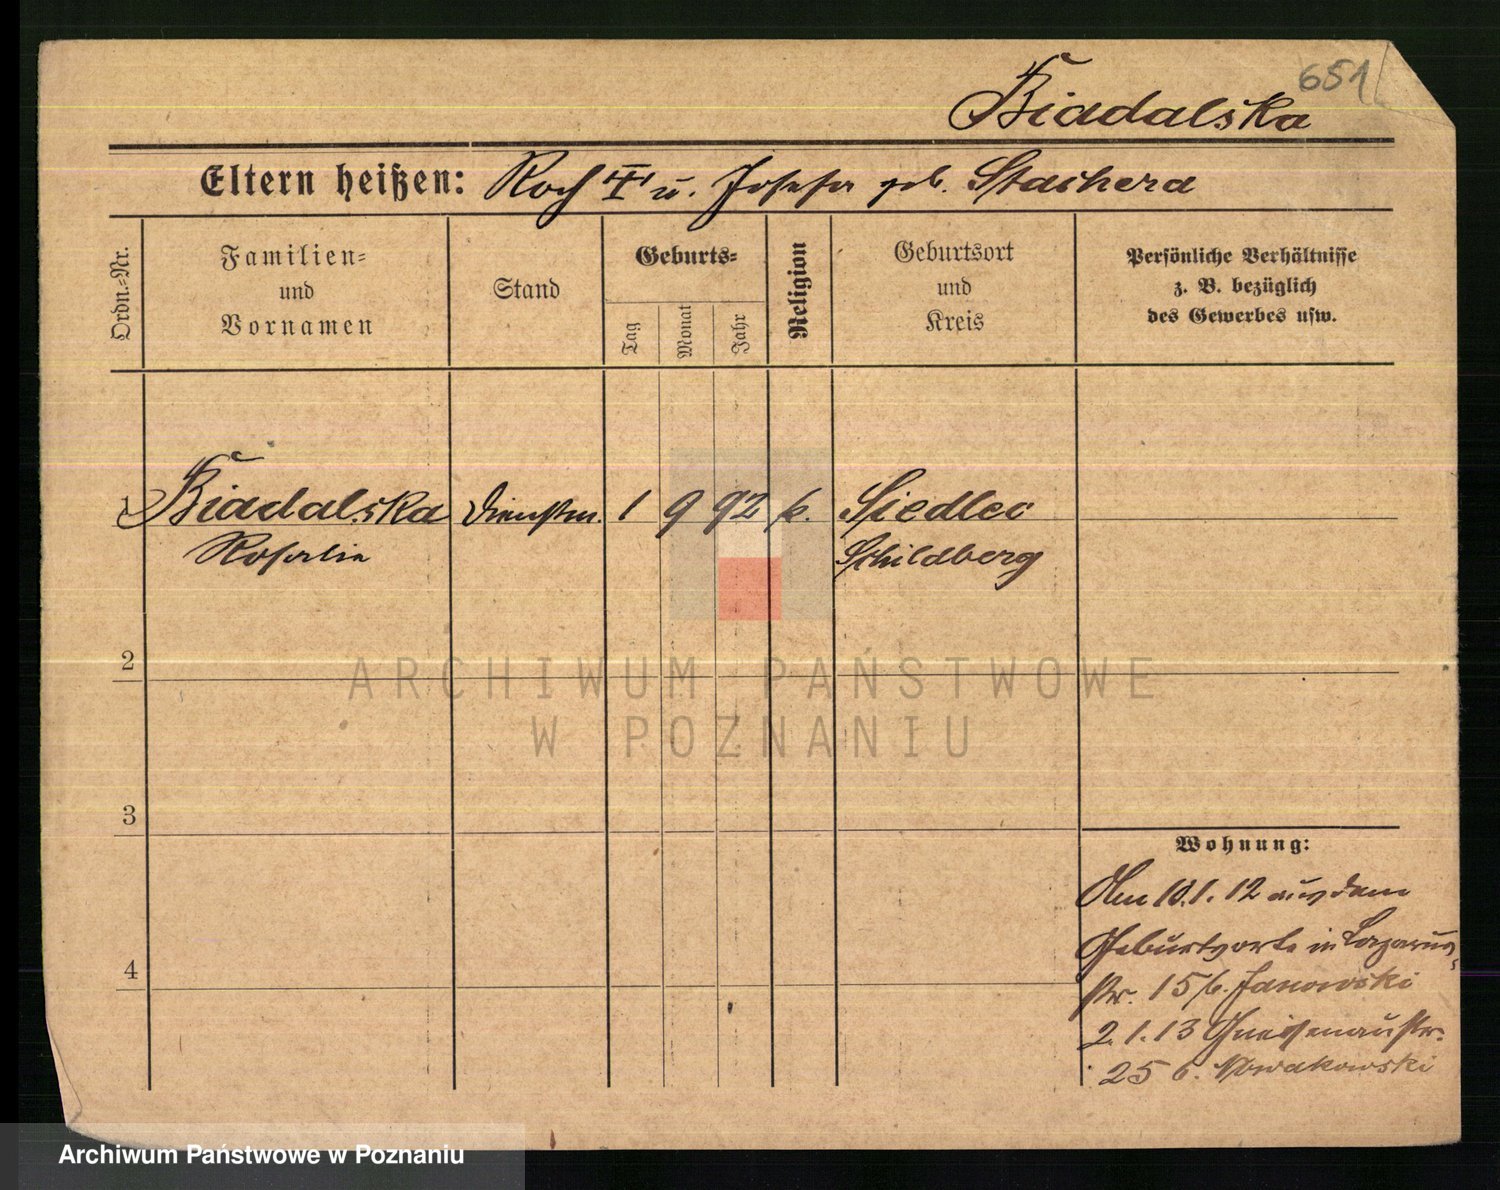 651
Biadalska
Eltern heißen: Roch u. Josefa geb. Stachera
Ordn.-Nr.
Familien-
und
Vornamen
Stand
Geburts-
Tag
Monat
Jahr
Religion
Geburtsort
und
Kreis
Persönliche Verhältnisse
z. B. bezüglich
des Gewerbes usw.
1 Biadalska Dienstm. 1 9 92 k. Siedlec
Rosalie Schildberg
2
3
4
Wohnung:
Am 10.1.12 aus dem
Geburtsorte in Lazarus-
str. 15 b. Janowski
2.1.13 Gneisenaustr.
25 b. Nowakowski
ARCHIWUM PAŃSTWOWE
W POZNANIU
Archiwum Państwowe w Poznaniu